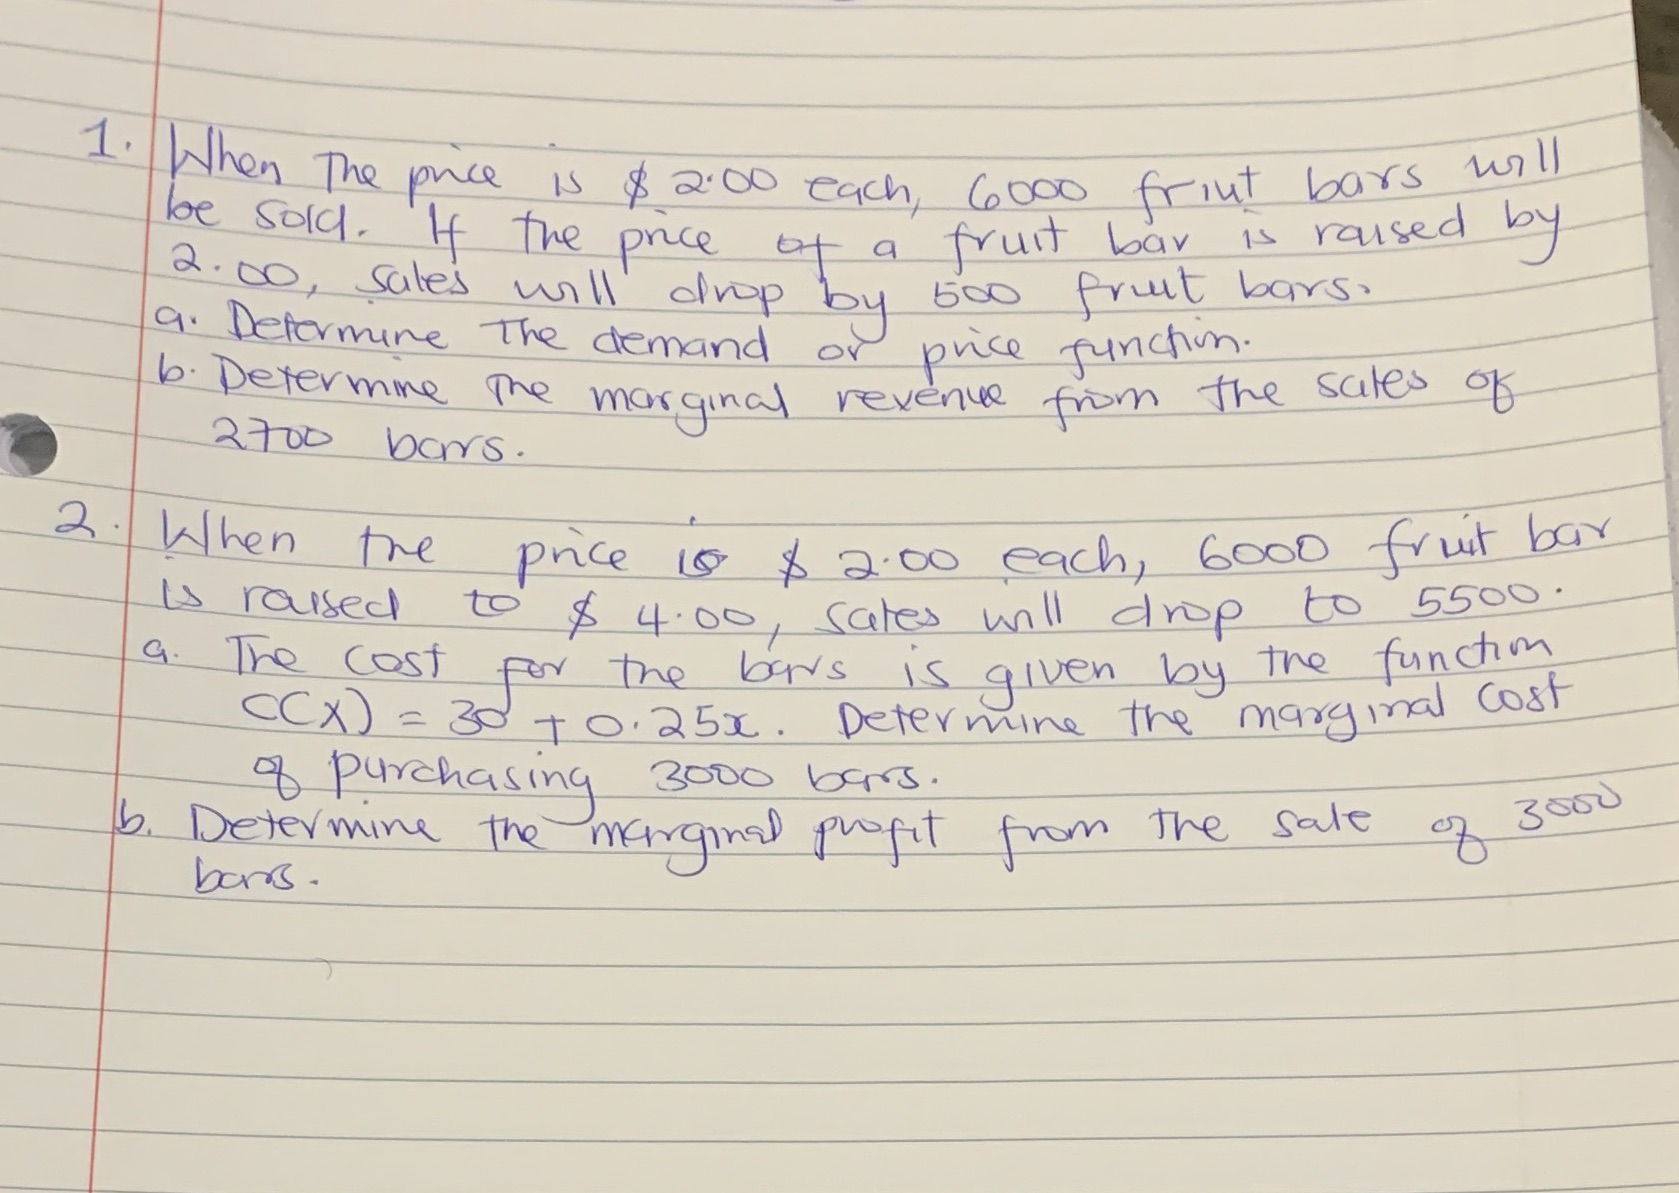 1. When The price is $2.00 each, 6000 friut bars will
be sold. If the price of a fruit bar is raised by
2.00, sales will drop by 500 fruit bars.
a. Determine The demand or price function.
b. Determine The marginal revenue from the sales of
2700 bars.
2. When the price is $2.00 each, 6000 fruit bar
is raised to $4.00, sales will drop to 5500.
a. The cost for the bars is given by the function
C(x) = 30 + 0.25x. Determine the marginal cost
of purchasing 3000 bars.
b. Determine the marginal profit from the sale of 3000
bars.